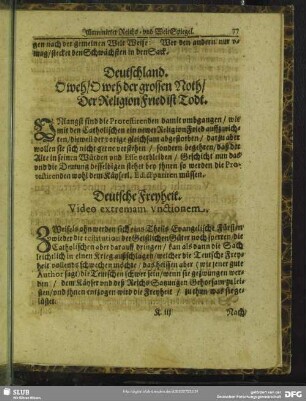 Memorirter Reichs- vnd Welt Spiegel. 77
gen nach der gemeinen Welt Weise / Wer den andern nur v-
mag / stecket den Schwächsten in den Sack.
Deutschland.
O weh / O weh der grossen Noth /
Der Religion Fried ist Todt.
sind die Protestierenden damit umbgangen / wie
mit den Catholischen ein newer Religion Fried auffzurich-
ten / dieweil der vorige gleichsam abgestorben / darzu aber
wollen sie sich nicht gerne verstehen / sondern begehren / daß der
Alte in seinen Würden und Esse verbleiben / Geschicht nun das /
und die Deutung desselbigen stehet bey ihnen so werden die Pro-
testierenden wohl dem Käyserl. Edict pariren müssen.
Deutsche Freyheit.
Video extremam vnctionem.
ohn werden sich eins Theils Evangelische Fürsten
wieder die restitution der Geistlichen Güter noch sperren / die
Catholischen aber darauff dringen / kan als dann die Sach
leichtlich in einen Krieg außschlagen / welcher die Teutsche Frey-
heit vollends schwechen möchte / das heissen aber / wie jener gute
Author sagt / die Teutschen schwer sein / wenn sie gezwungen wer-
den / dem Käyser und deß Reichs Satzungen Gehorsam zuleis-
sten / und ihnen entzogen wird die Freyheit / zu thun was sie ge-
lüstet.
K iij
Noch /
SLUB
Wir führen Wissen.
gefördert von der
DFG
Deutsche Forschungsgemeinschaft